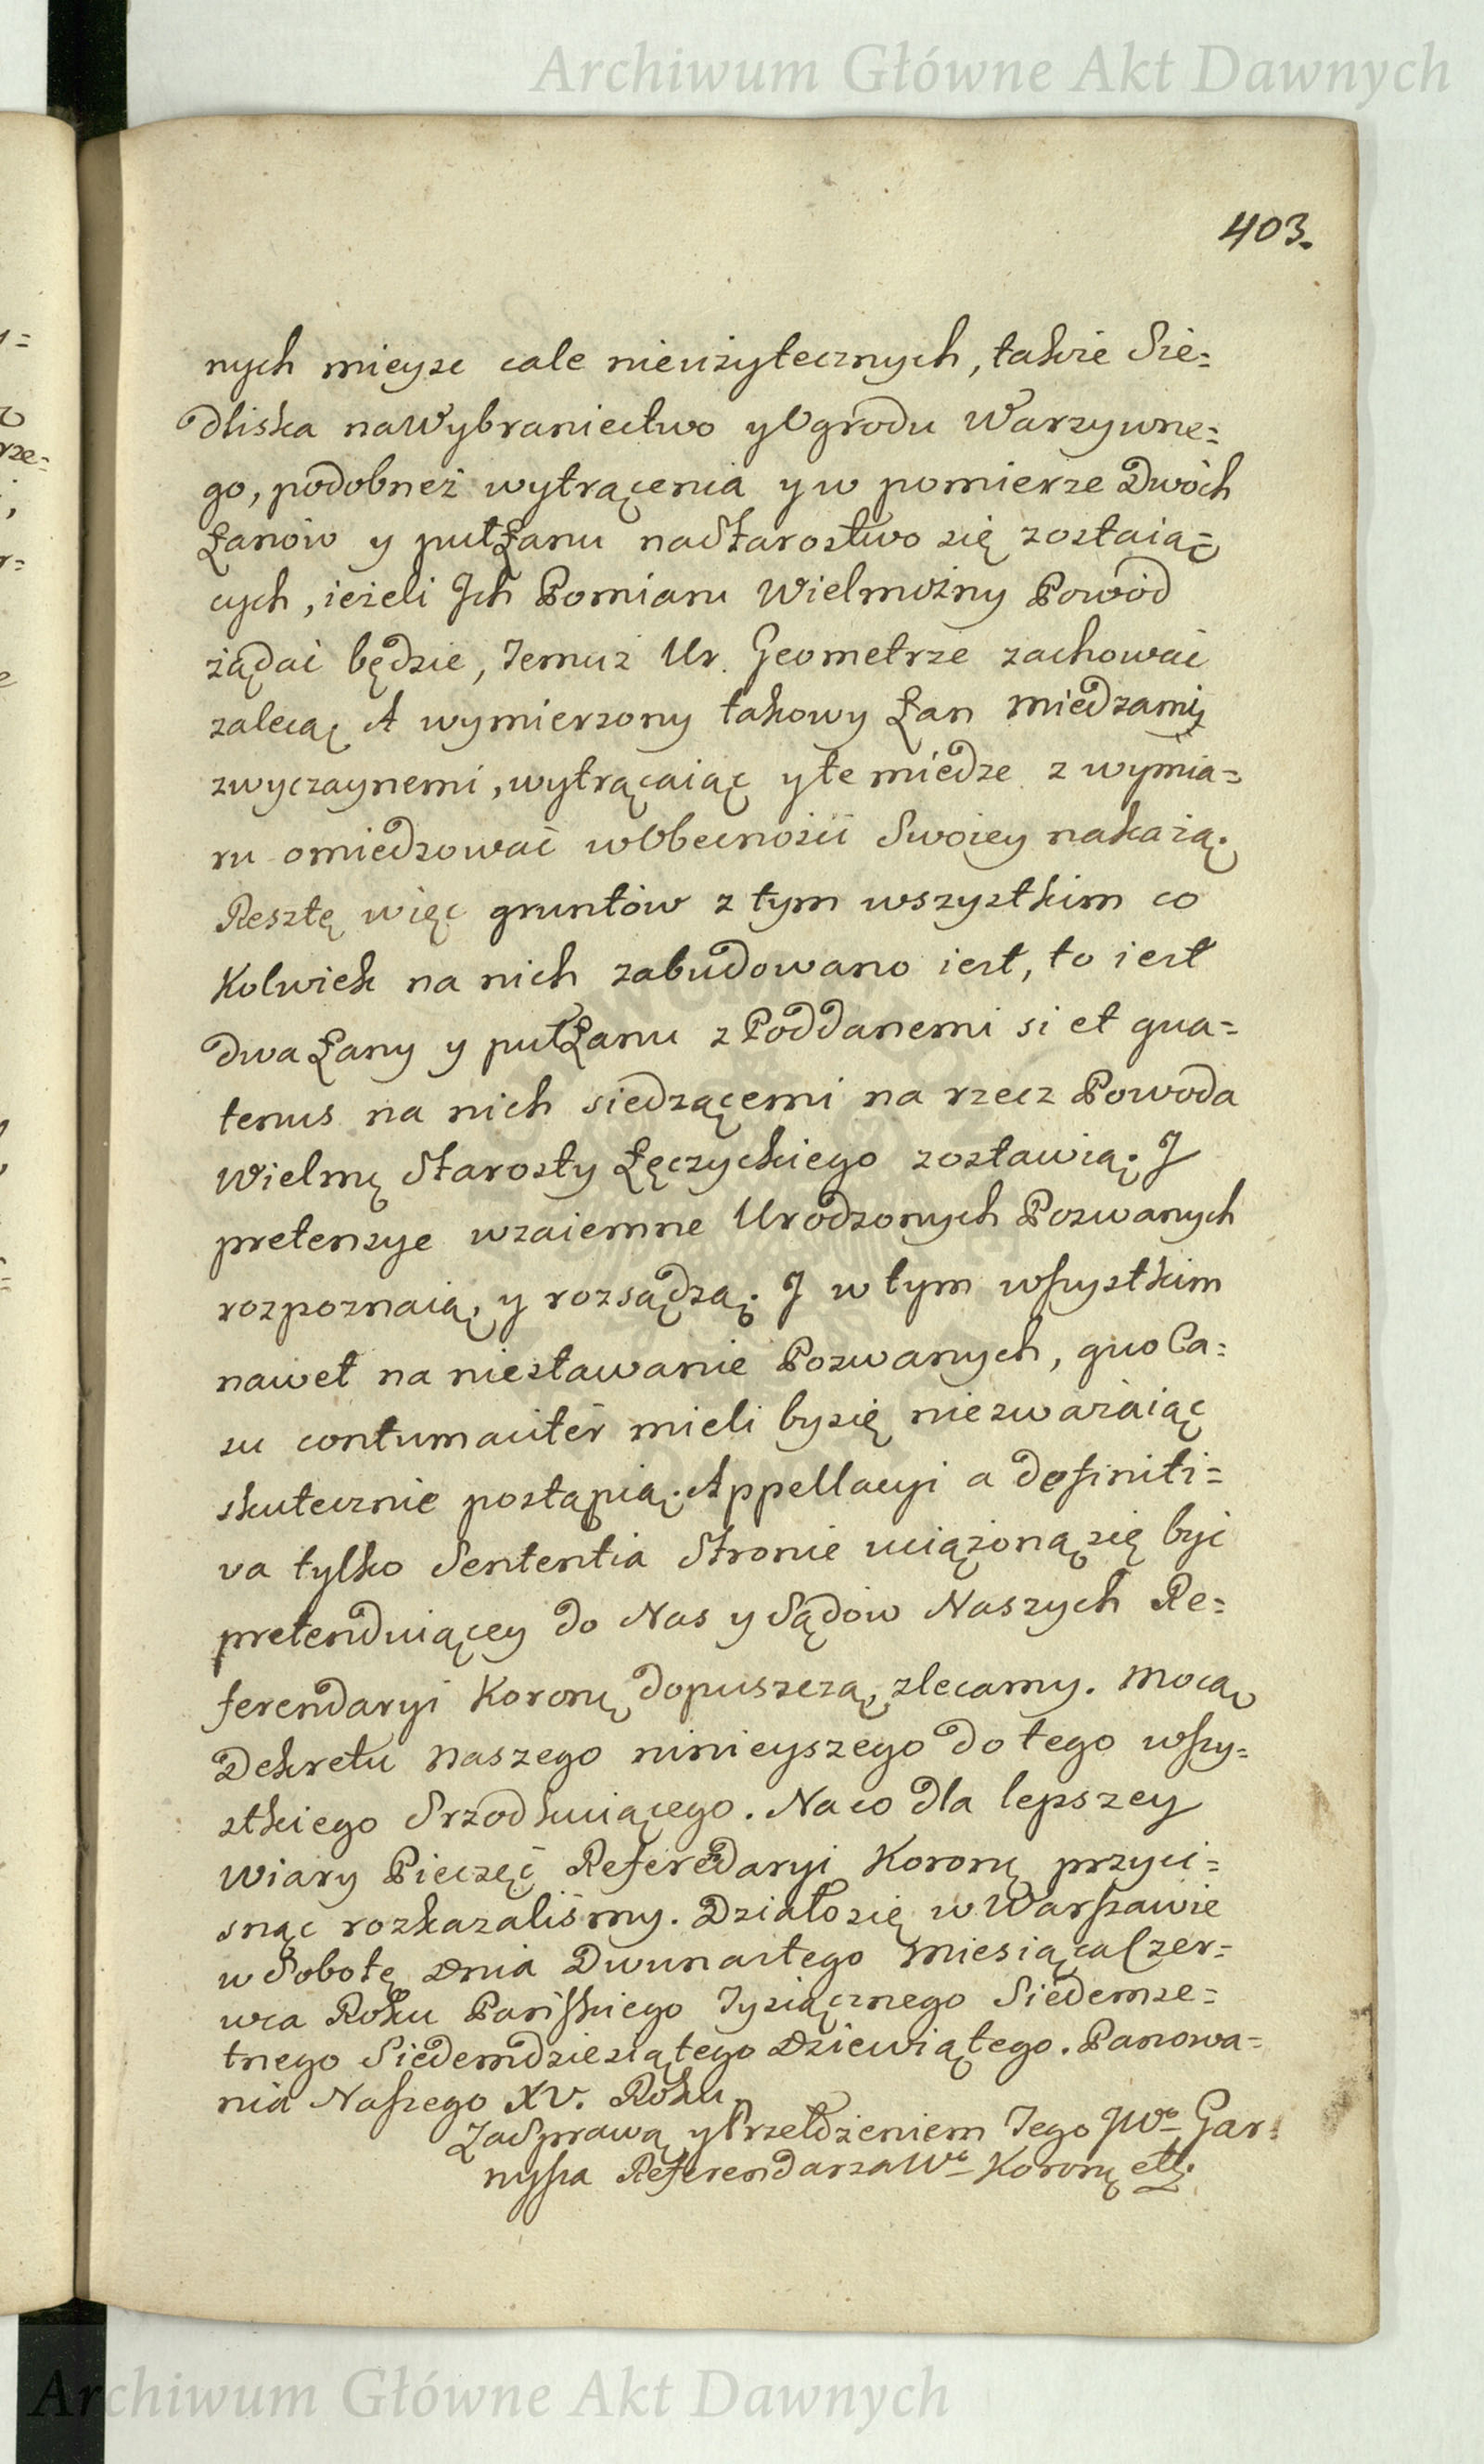 Archiwum Główne Akt Dawnych
403.
nych mieysc cale nieużytecznych, także Sie=
dliska na Wybraniectwo y Ogrodu Warzywne=
go, podobneż wytrącenia y w pomierze Dwóch
Łanów y puł Łanu na Starostwo się zostaią=
cych, ieżeli Jch Pomiaru Wielmożny Powód
żądać będzie, temuż Ur. Geometrze zachować
zalecą, A wymierzony takowy Łan miedzamy
zwyczaynemi, wytrącaiąc y te miedze z wymia=
ru omiedzować w Obecności Swoiey nakażą.
Resztę więc gruntów z tym wszystkim co
Kolwiek na nich zabudowano iest, to iest
dwa Łany y puł Łanu z Poddanemi si et qua=
tenus na nich siedzącemi na rzecz Powoda
Wielmo Starosty Łęczyckiego zostawią. J
pretensye wzaiemne Urodzonych Pozwanych
rozpoznaią, y rozsądzą. J w tym wszystkim
nawet na niestawanie Pozwanych, quo Ca=
su contumaciter mieli by się niezważaiąc
skutecznie postąpią. Appellacyi a definiti=
va tylko Sententia Stronie uciążoną się byc
pretenduiącey do Nas y Sądów Naszych Re=
ferendaryi Koronney dopuszczą, zlecamy. Mocą
Dekretu naszego ninieyszego do tego wszy=
stkiego Srzodkuiącego. Na co dla lepszey
wiary Pieczęć Referendaryi Koronney przyci=
snąc rozkazaliśmy. Działo się w Warszawie
w Sobotę dnia Dwunastego Miesiąca Czer=
wca Roku Pańskiego Tysiącznego Siedemse=
tnego Siedemdziesiątego Dziewiątego. Panowa=
nia Naszego XV. Roku.
Za Sprawą y Przełożeniem Jego JWo Gar=
nysza Referendarza Wo Koronney ett.
Archiwum Główne Akt Dawnych